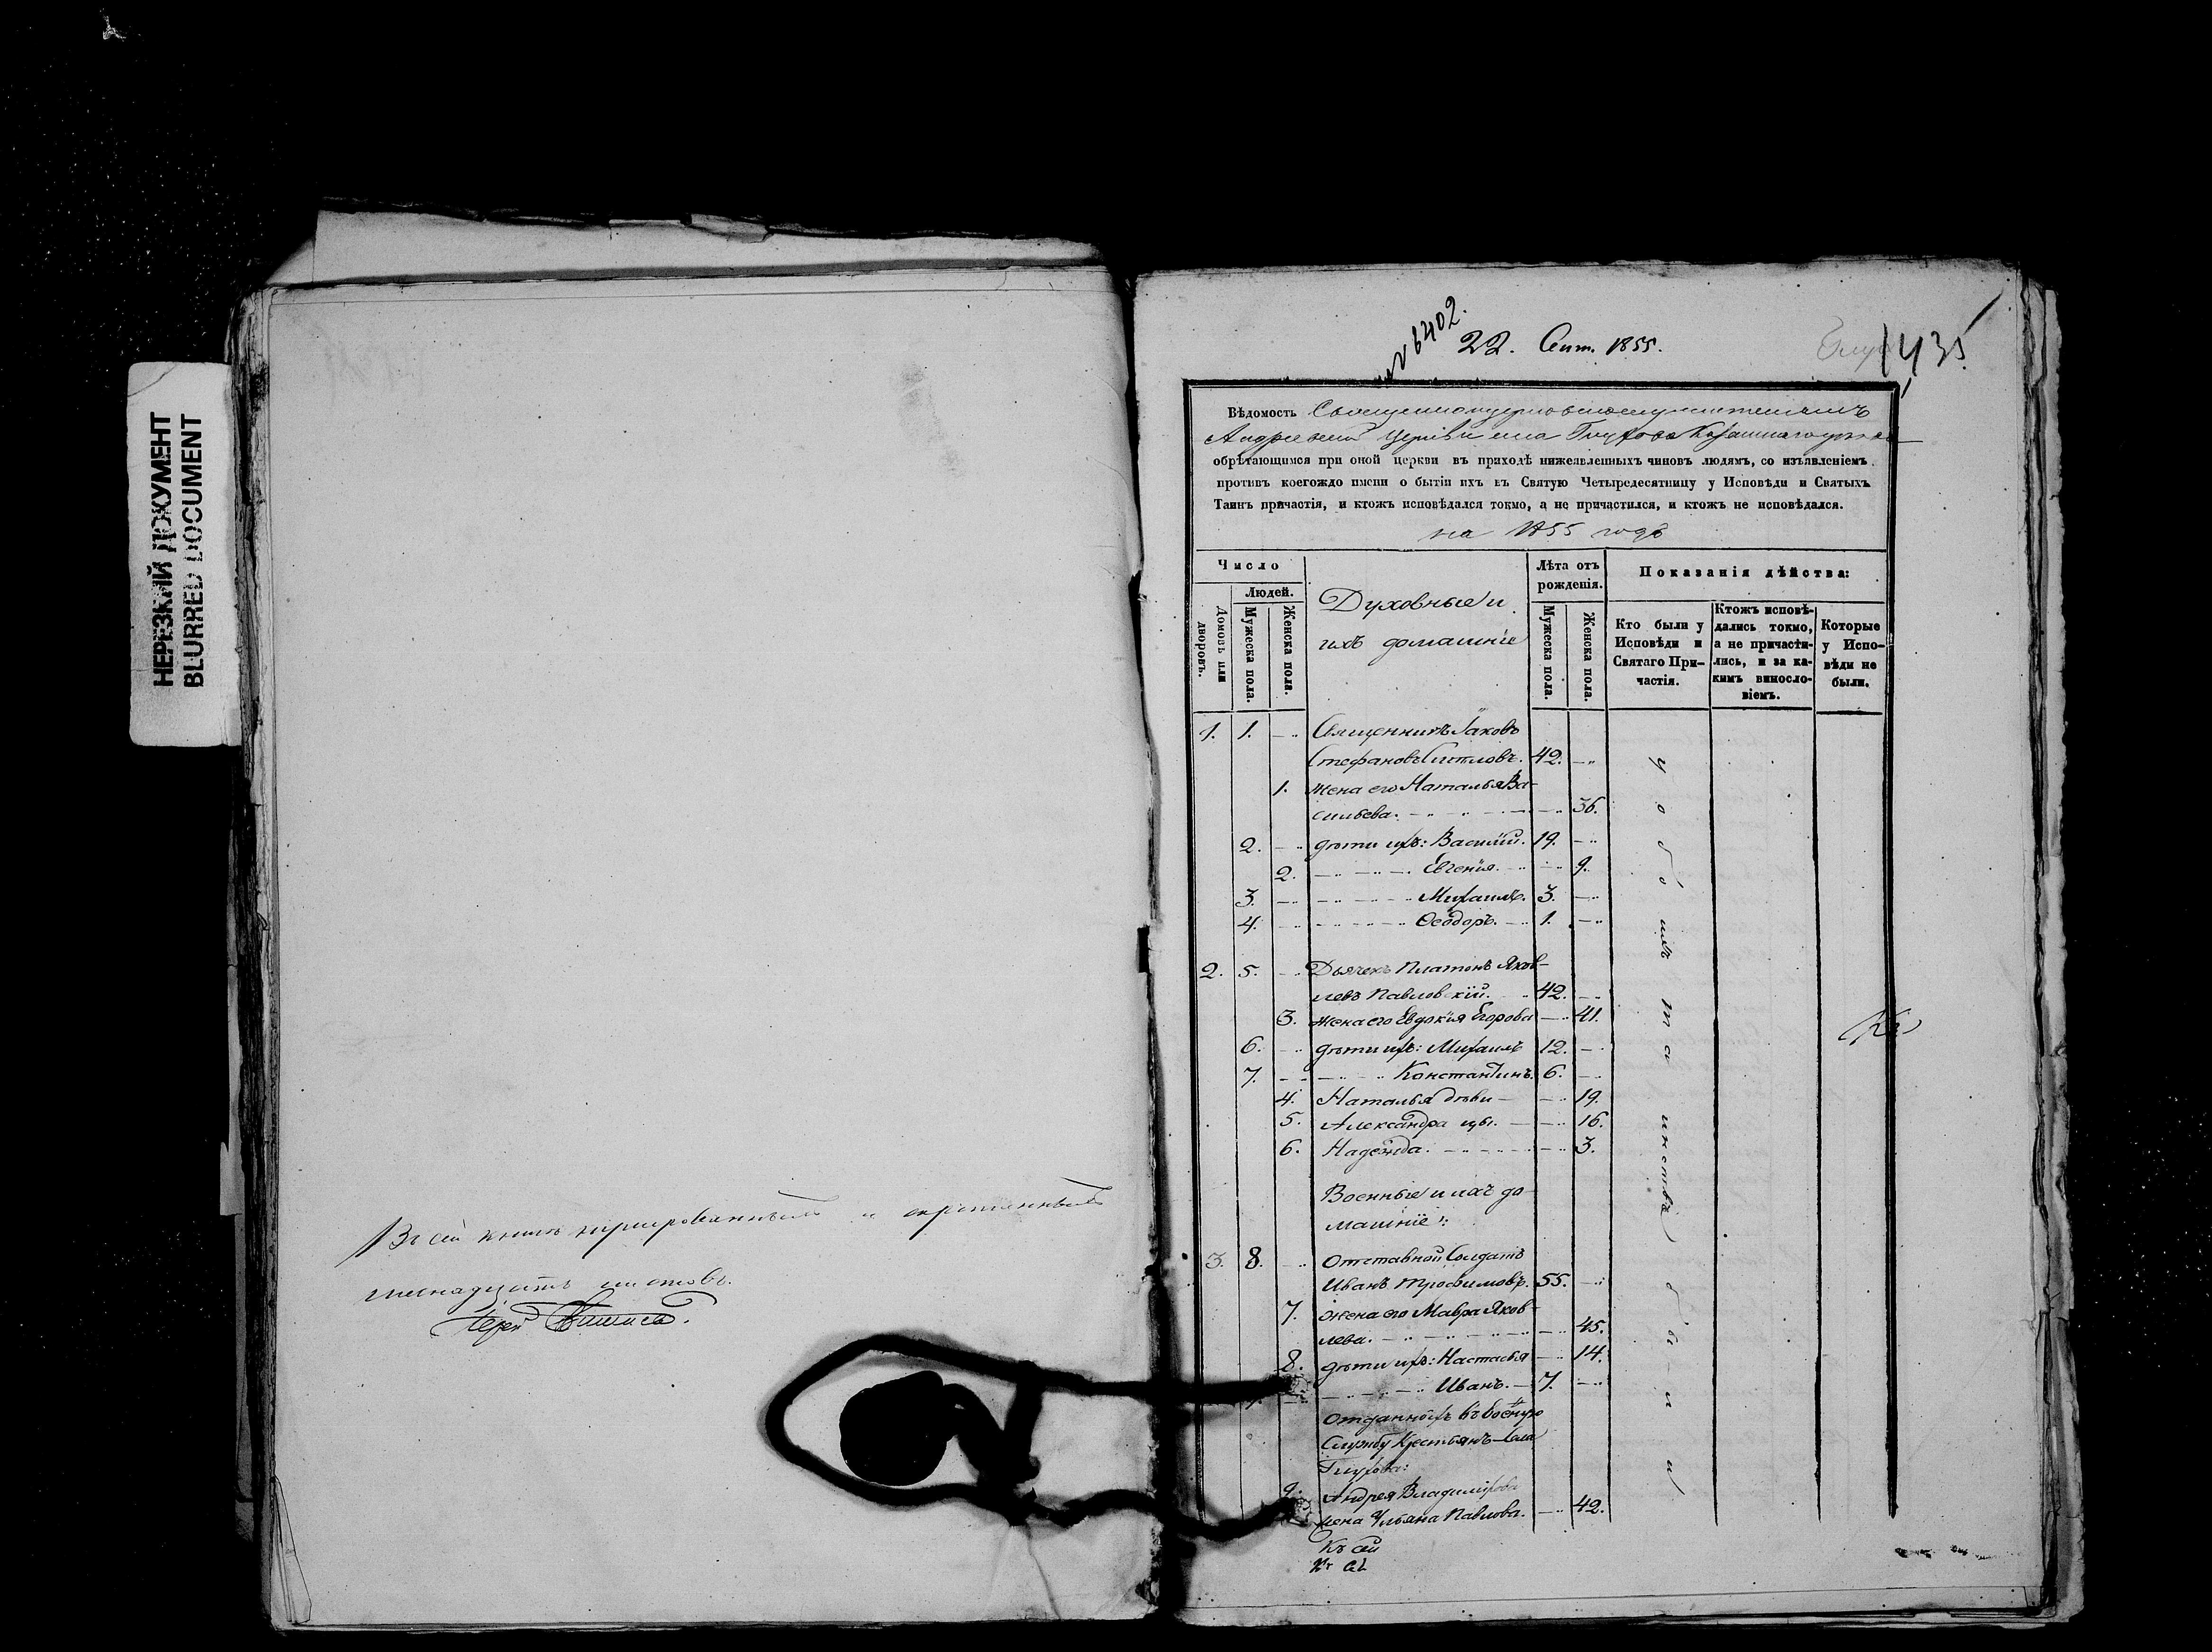 НЕРЕЗКИЙ ДОКУМЕНТ
BLURRED DOCUMENT
Въ сей книгѣ нумерованныхъ и скрѣпленныхъ
листовъ.
Іерей
№ 6402.
22. Сент. 1855.
1435
Вѣдомость
Андреевской церкви села Глухова Казанскаго
обрѣтающимся при оной церкви въ приходѣ нижеявленныхъ чиновъ людямъ, со изъявленіемъ
противъ коегождо имени о бытіи ихъ въ Святую Четыредесятницу у Исповѣди и Святыхъ
Таинъ причастія, и ктожъ исповѣдался токмо, а не причастился, и ктожъ не исповѣдался.
на 1855 годъ
Число
Людей.
Домовъ или дворовъ.
Мужеска пола.
Женска пола.
Духовные и
ихъ домашніе
Лѣта отъ рожденія.
Мужеска пола.
Женска пола.
Показанія дѣйства:
Кто были у Исповѣди и Святаго Причастія.
Ктожъ исповѣдались токмо, а не причастились, и за какимъ винословіемъ.
Которые у Исповѣди не были.
1. 1. Священникъ Іаковъ
Стефановъ 42.
1. Жена его Наталья Ва-
сильева. 36.
2. дѣти ихъ: Василій. 19.
2. Евгенія. 9.
3. Михаилъ. 3.
4. Ѳеодоръ. 1.
2. 5. Дьячекъ Платонъ Яков-
левъ Павловскій. 42.
3. жена его Евдокія Егорова 41.
6. дѣти ихъ: Михаилъ 12.
7. Константинъ. 6.
4. Наталья дѣви- 19.
5. Александра цы. 16.
6. Надежда. 3.
Военные и ихъ до-
машніе:
3. 8. Отставной Солдатъ
Иванъ Трофимовъ. 55.
7. жена его Мавра Яков-
лева. 45.
8. дѣти ихъ: Настасья 14.
Иванъ. 7.
Отданныхъ въ военную
Службу Крестьянъ Села
Глухова:
9. Андрея Владимірова
жена Ульяна Павлова. 42.
Къ сей
Къ се
были